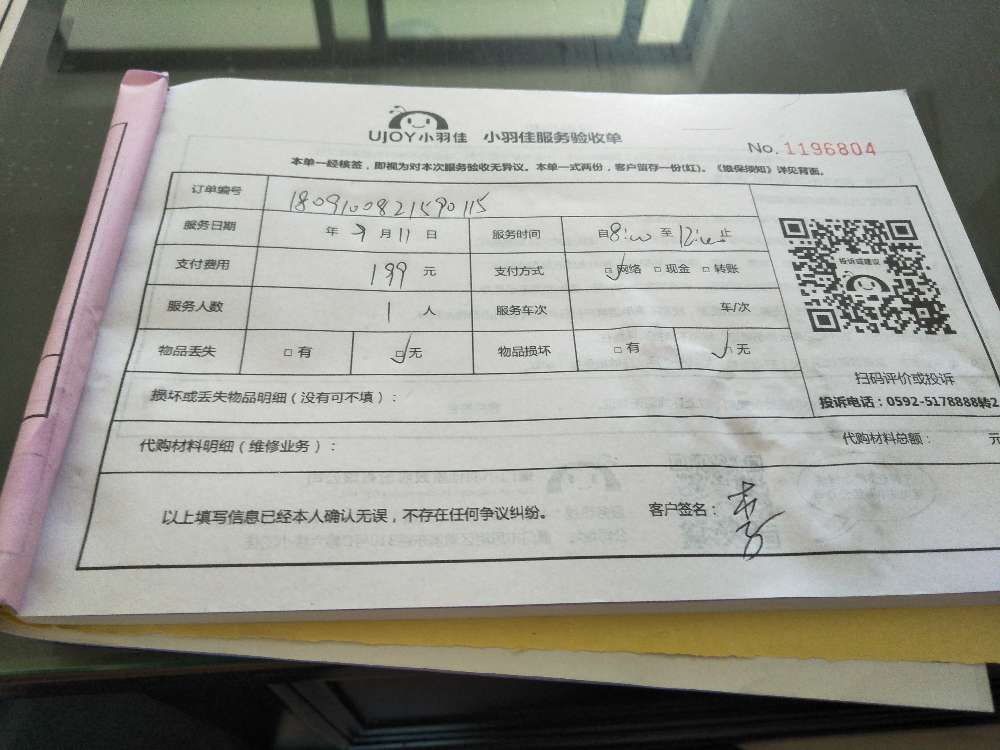 UJOY小羽佳 小羽佳服务验收单
No. 1196804
本单一经核签，即视为对本次服务验收无异议。本单一式两份，客户留存一份(红)。《维保须知》详见背面。
订单编号 1809100821590115
服务日期 年 9 月 11 日 服务时间 自8:00 至 12:00 止
支付费用 199 元 支付方式 ☑网络 □现金 □转账
服务人数 1 人 服务车次 车/次
物品丢失 □有 ☑无 物品损坏 □有 ☑无
投诉或建议
扫码评价或投诉
投诉电话：0592-5178888转2
损坏或丢失物品明细（没有可不填）：
代购材料明细（维修业务）： 代购材料总额： 元
以上填写信息已经本人确认无误，不存在任何争议纠纷。 客户签名：